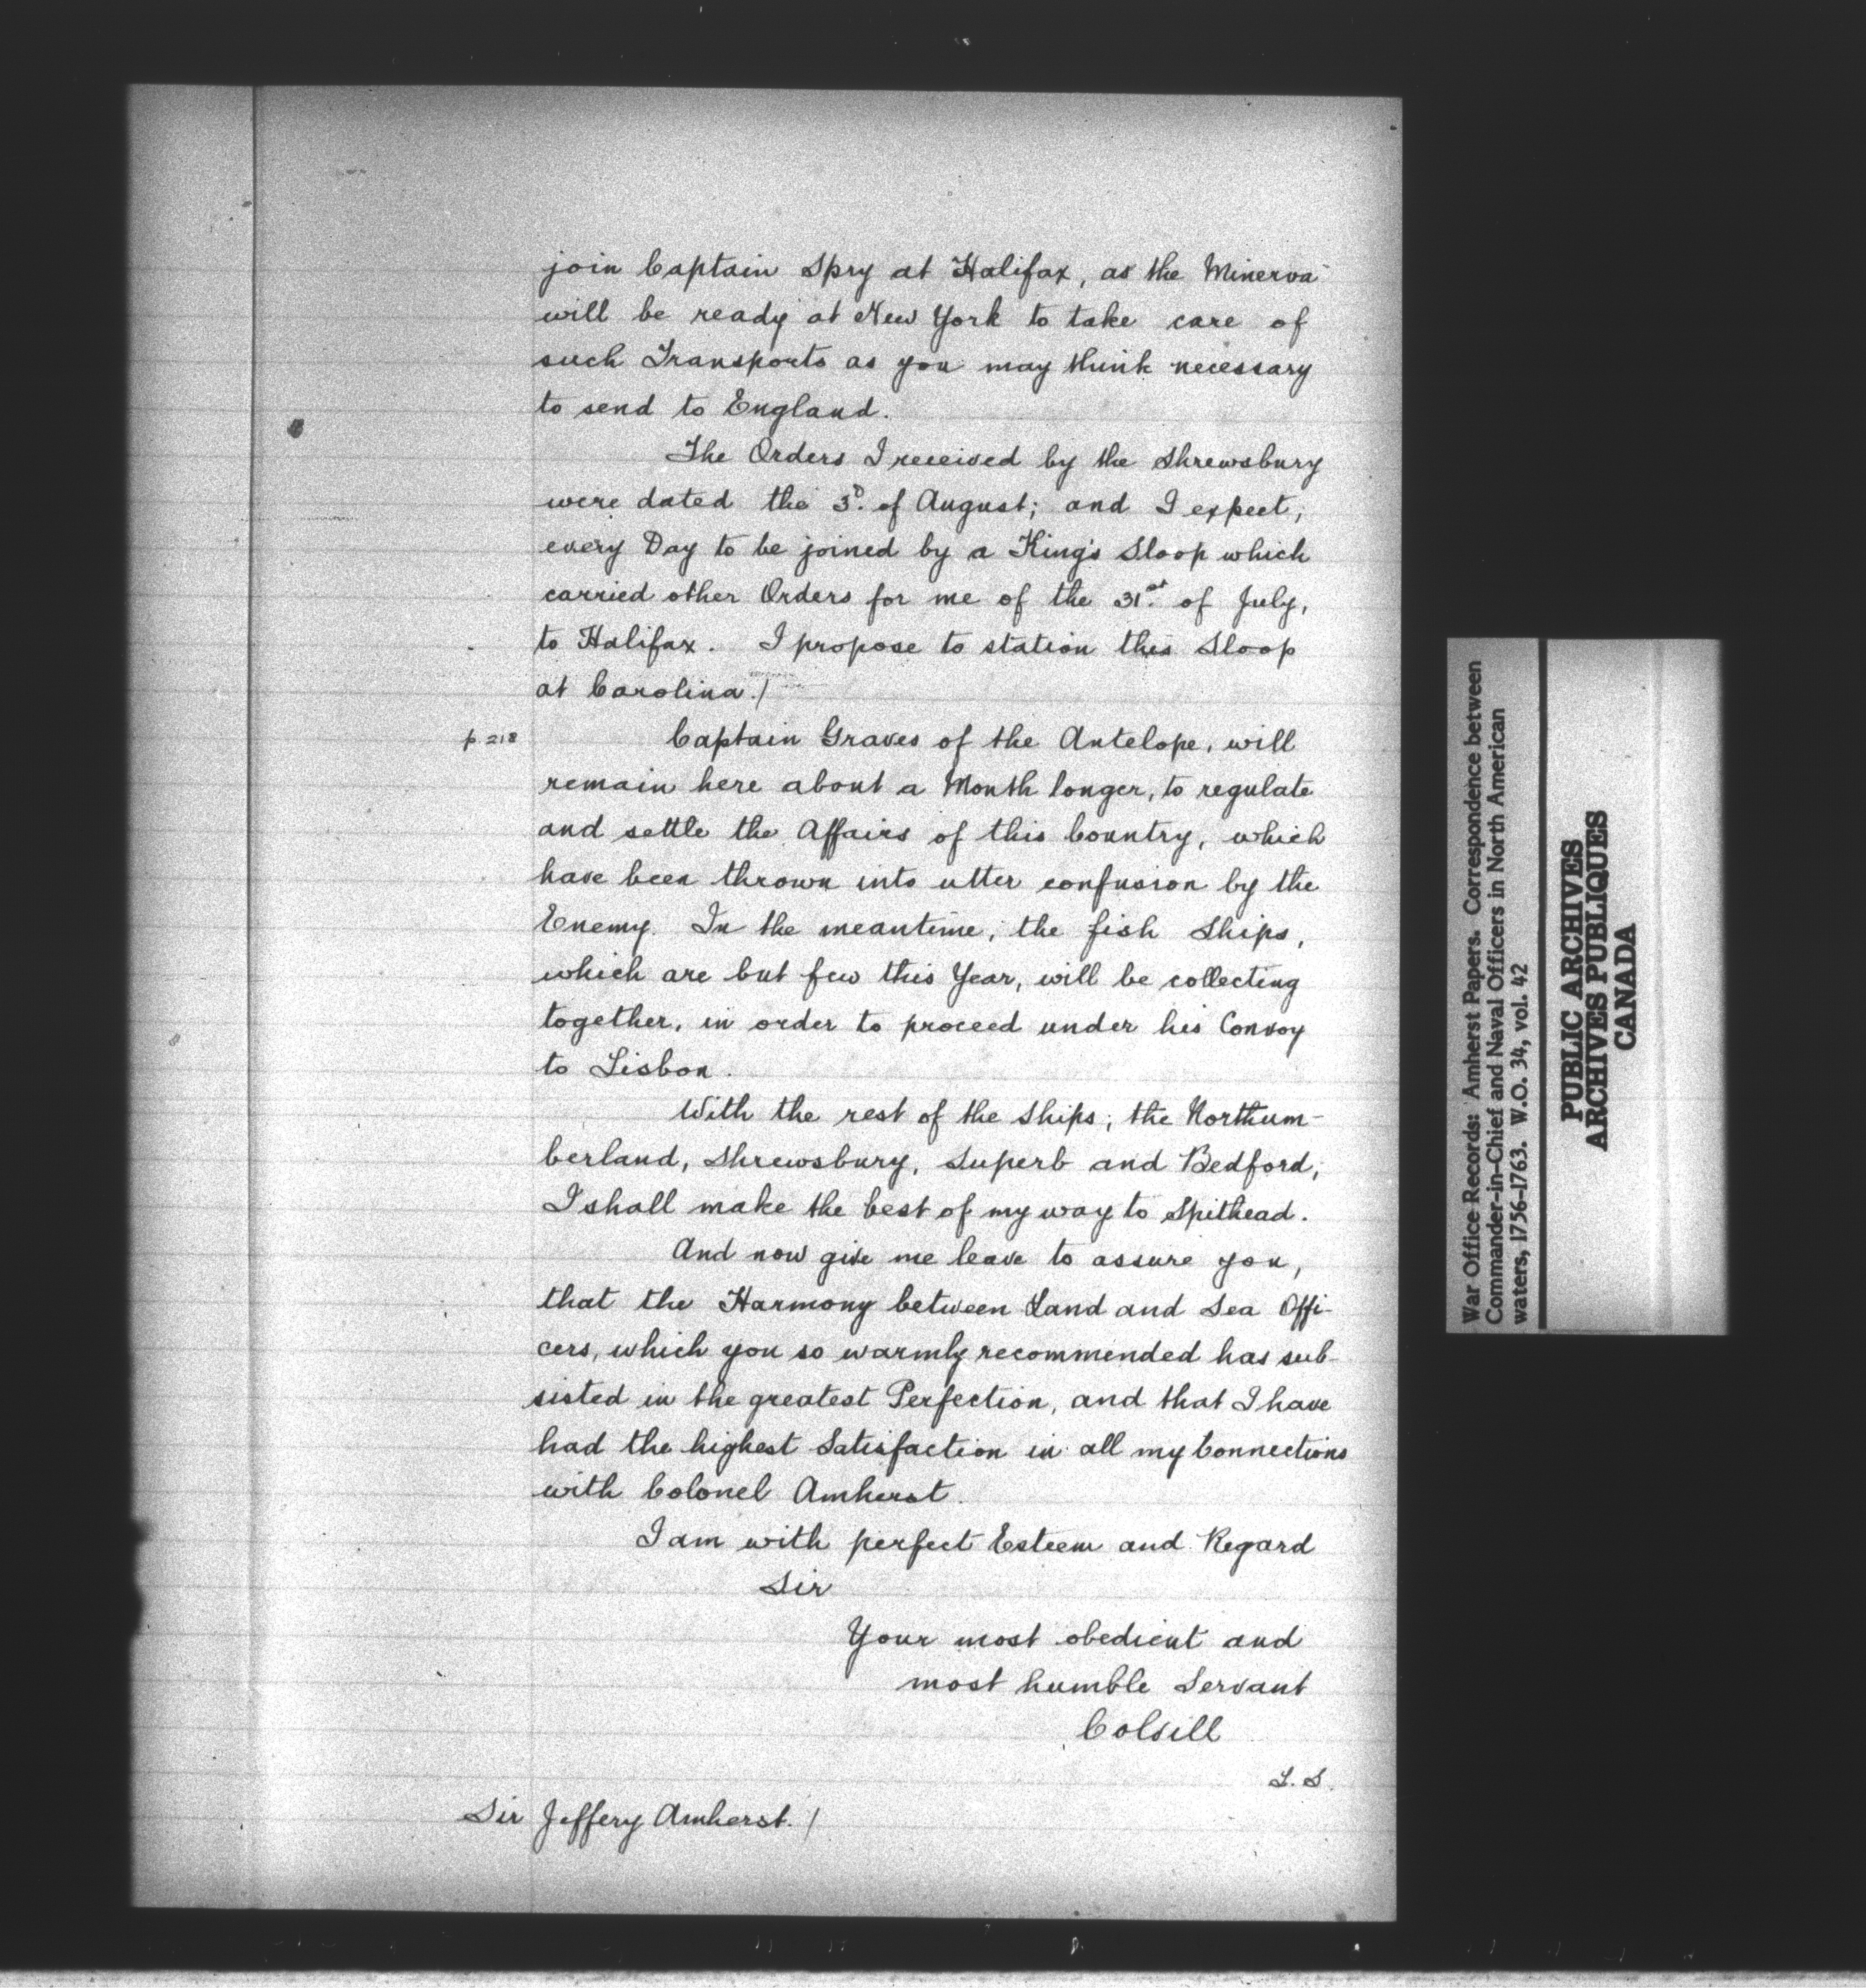 join Captain Spry at Halifax, as the Minerva
will be ready at New York to take care of
such Transports as you may think necessary
to send to England.
The Orders I received by the Shrewsbury
were dated the 3.ᴰ of August; and I expect,
every Day to be joined by a King's Sloop which
carried other Orders for me of the 31.st of July,
to Halifax. I propose to station this Sloop
at Carolina./
p. 218
Captain Graves of the Antelope, will
remain here about a Month longer, to regulate
and settle the Affairs of this Country, which
have been thrown into utter confusion by the
Enemy. In the meantime, the fish Ships,
which are but few this Year, will be collecting
together, in order to proceed under his Convoy
to Lisbon.
With the rest of the Ships; the Northum-
berland, Shrewsbury, Superb and Bedford,
I shall make the best of my way to Spithead.
And now give me leave to assure you,
that the Harmony between Land and Sea Offi-
cers, which you so warmly recommended has sub-
sisted in the greatest Perfection, and that I have
had the highest Satisfaction in all my Connections
with Colonel Amherst.
I am with perfect Esteem and Regard
Sir
Your most obedient and
most humble Servant
Colvill
L. S.
Sir Jeffery Amherst. /
War Office Records: Amherst Papers. Correspondence between
Commander-in-Chief and Naval Officers in North American
waters, 1756-1763. W.O. 34, vol. 42
PUBLIC ARCHIVES
ARCHIVES PUBLIQUES
CANADA